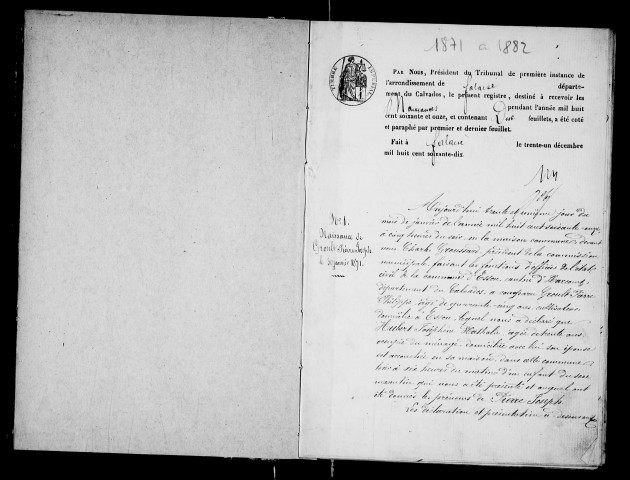 1871 a 1882
TIMBRE IMPÉRIAL
Par Nous, Président du Tribunal de première instance de
l'arrondissement de Falaise départe-
ment du Calvados, le présent registre, destiné à recevoir les
Naissances pendant l'année mil huit
cent soixante et onze, et contenant feuillets, a été coté
et paraphé par premier et dernier feuillet.
Fait à Falaise le trente-un décembre
mil huit cent soixante-dix.
N° 1.
Naissance de
Groult Pierre Joseph
le 30 janvier 1871.
Aujourd'hui trente et unième jour du
mois de janvier de l'année mil huit cent soixante-onze
à cinq heures du soir, en la maison commune devant
nous Charles Groussard, président de la commission
municipale, faisant les fonctions d'officier de l'état
civil de la commune d'Esson, canton d'Harcourt
département du Calvados, a comparu Groult Pierre
Philippe âgé de quarante-cinq ans, cultivateur
domicilié à Esson, lequel nous a déclaré que
Hubert Joséphine Mathilde âgée de trente ans
occupée du ménage domiciliée avec lui son épouse
est accouchée en sa maison, dans cette commune
hier à six heures du matin d'un enfant du sexe
masculin qui nous a été présenté et auquel ont
été donnés les prénoms de Pierre Joseph
Les déclaration et présentation ci-dessus